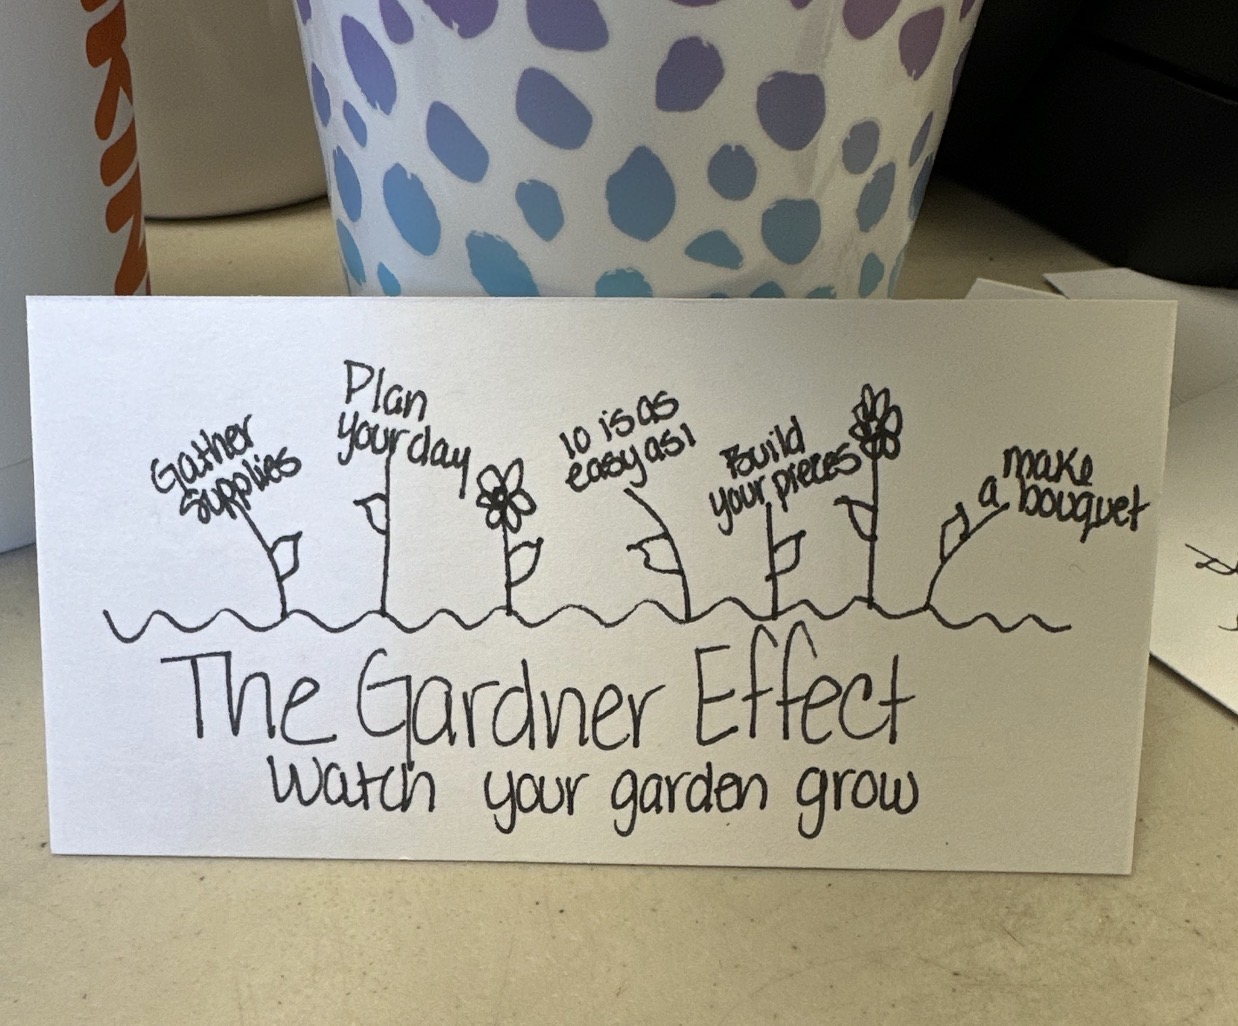 Gather
supplies
Plan
your day
10 is as
easy as 1
Build
your pieces
make
a bouquet
The Gardner Effect
Watch your garden grow